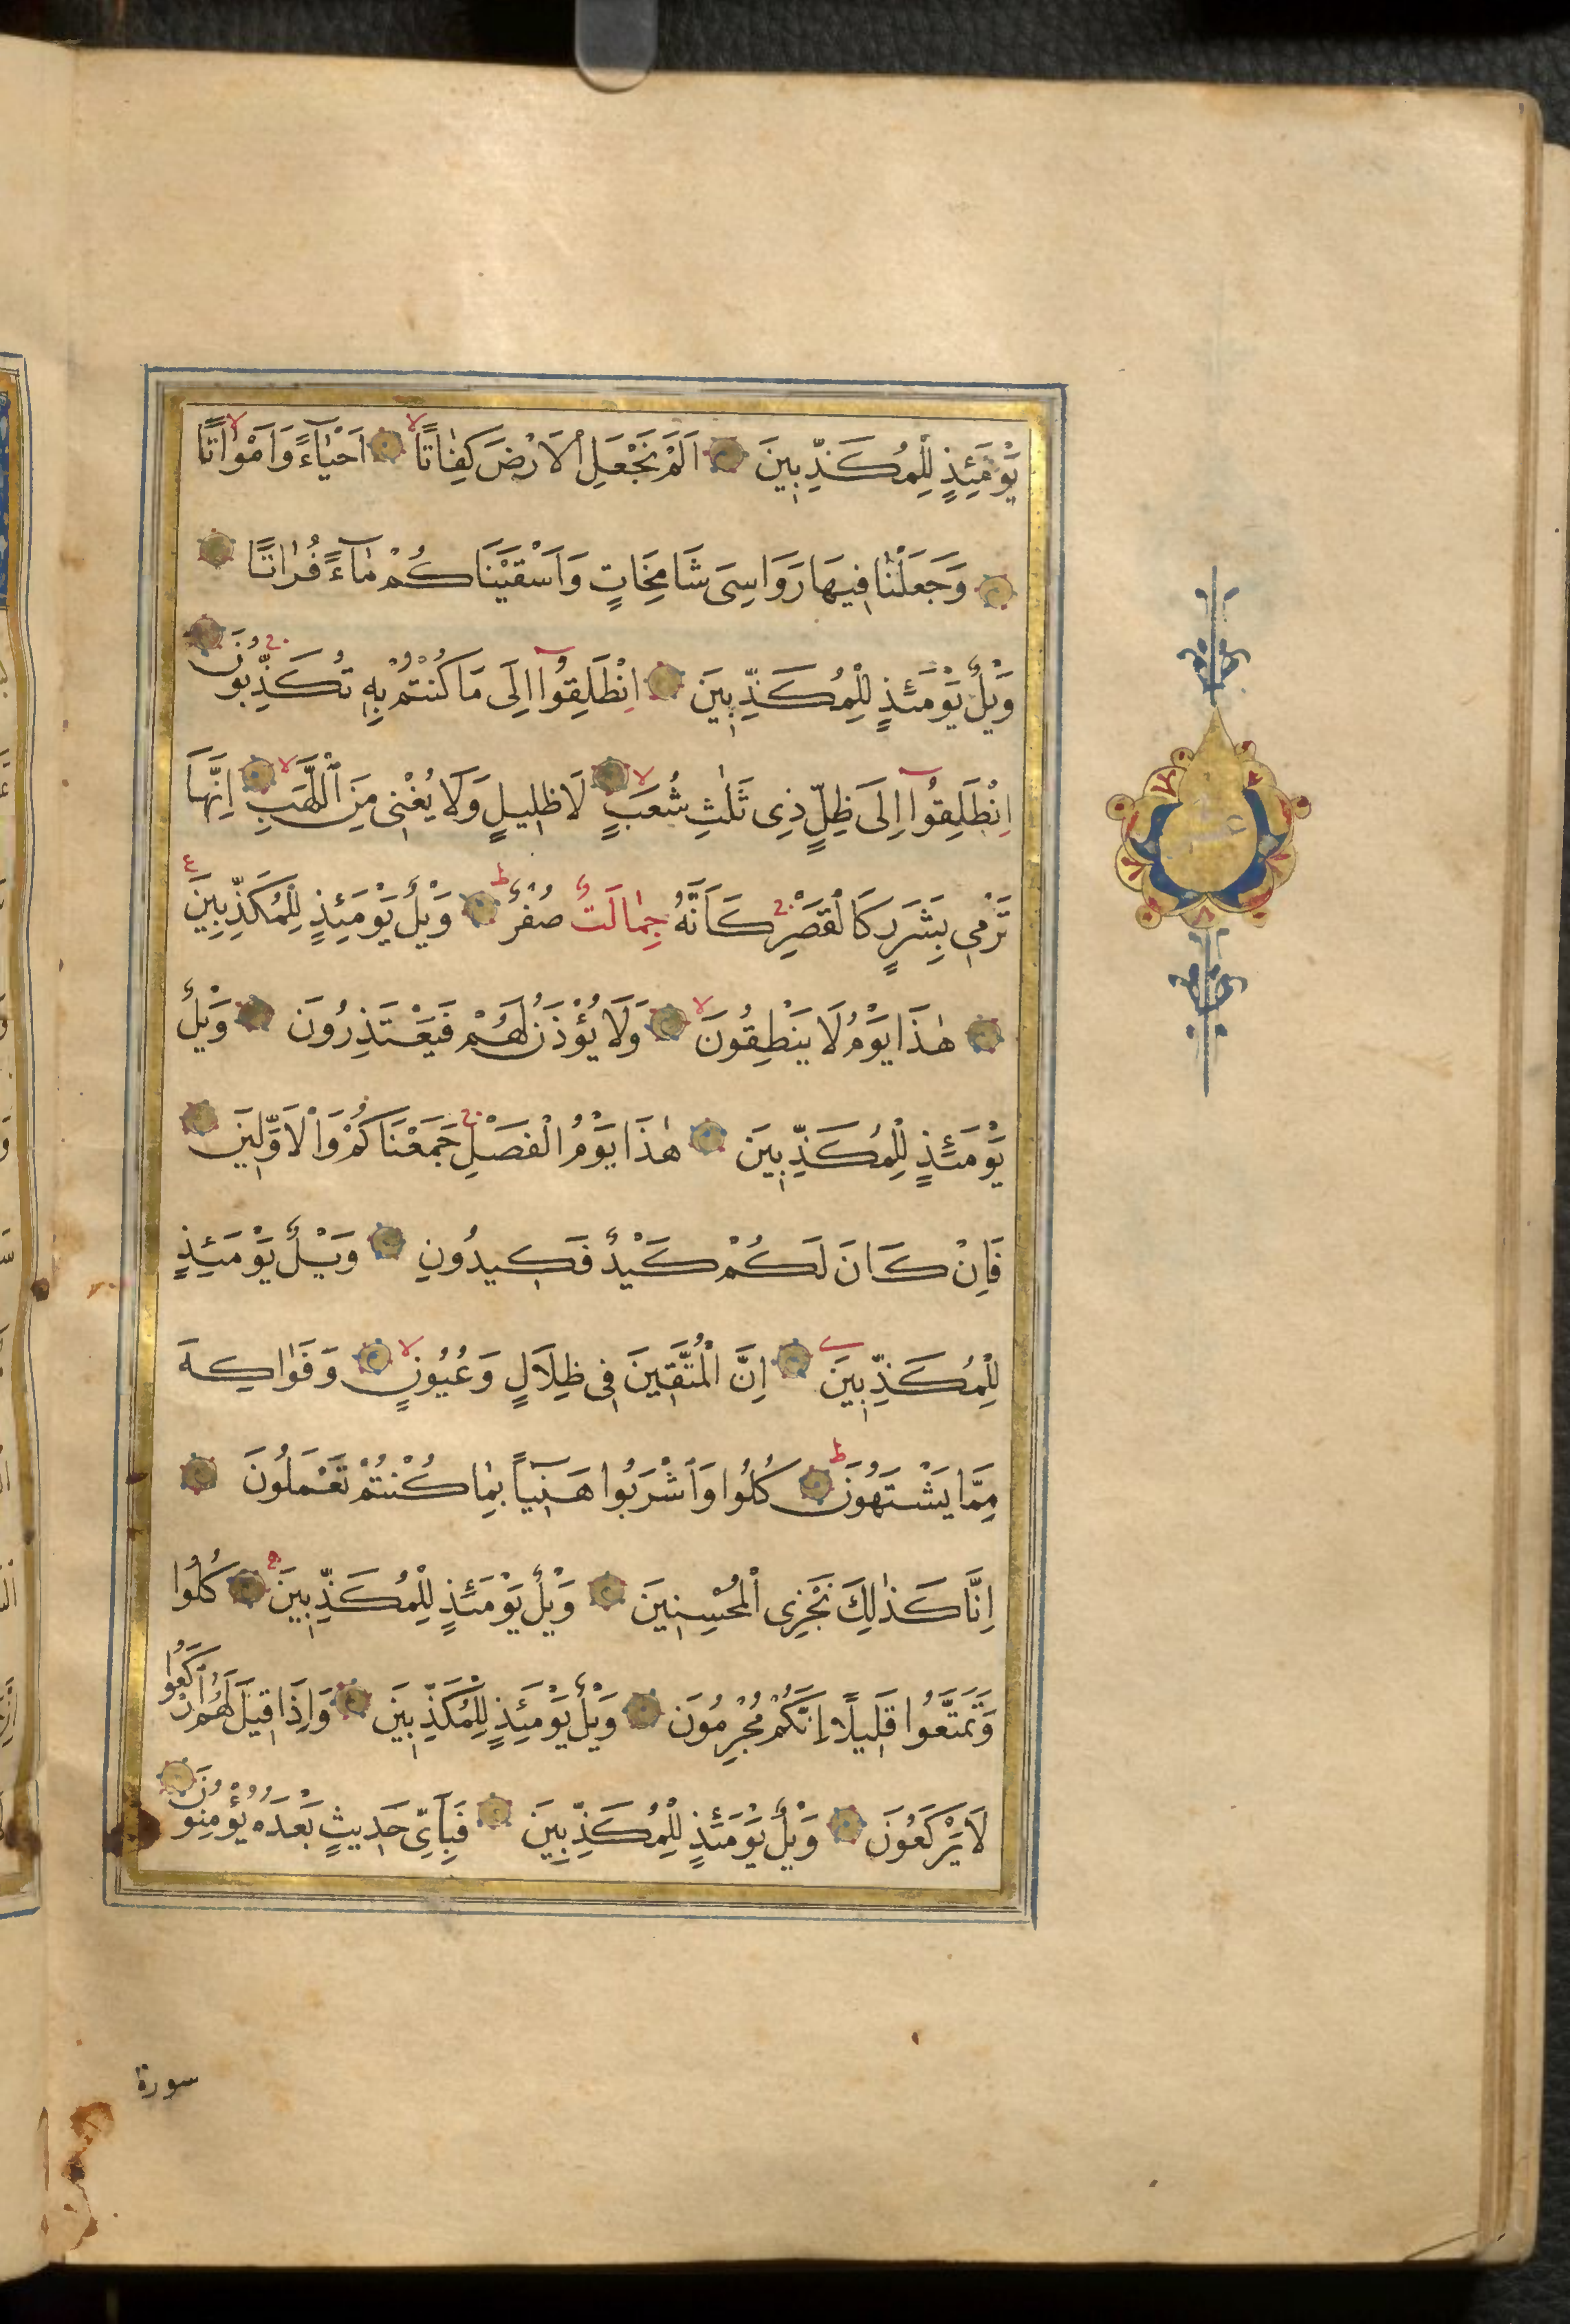 يَوْمَئِذٍ لِلْمُكَذِّبِينَ اَلَمْ نَجْعَلِ الْاَرْضَ كِفَاتًا لا اَحْيَآءً وَاَمْوَاتًا لا
وَجَعَلْنَا فِيهَا رَوَاسِىَ شَامِخَاتٍ وَاَسْقَيْنَاكُمْ مَآءً فُرَاتًا
وَيْلٌ يَوْمَئِذٍ لِلْمُكَذِّبِينَ اِنْطَلِقُوآ اِلَى مَا كُنْتُمْ بِهِ تُكَذِّبُونَ ج
اِنْطَلِقُوآ اِلَى ظِلٍّ ذِى ثَلٰثِ شُعَبٍ لا لَا ظَلِيلٍ وَلَا يُغْنِى مِنَ اللَّهَبِ لا اِنَّهَا
تَرْمِى بِشَرَرٍ كَالْقَصْرِ ج كَاَنَّهُ جِمَالَتٌ صُفْرٌ ط وَيْلٌ يَوْمَئِذٍ لِلْمُكَذِّبِينَ ع
هٰذَا يَوْمُ لَا يَنْطِقُونَ لا وَلَا يُؤْذَنُ لَهُمْ فَيَعْتَذِرُونَ وَيْلٌ
يَوْمَئِذٍ لِلْمُكَذِّبِينَ هٰذَا يَوْمُ الْفَصْلِ ج جَمَعْنَاكُمْ وَالْاَوَّلِينَ
فَاِنْ كَانَ لَكُمْ كَيْدٌ فَكِيدُونِ وَيْلٌ يَوْمَئِذٍ
لِلْمُكَذِّبِينَ اِنَّ الْمُتَّقِينَ فِى ظِلَالٍ وَعُيُونٍ لا وَفَوَاكِهَ
مِمَّا يَشْتَهُونَ ط كُلُوا وَاشْرَبُوا هَنِيـًٔا بِمَا كُنْتُمْ تَعْمَلُونَ
اِنَّا كَذٰلِكَ نَجْزِى الْمُحْسِنِينَ وَيْلٌ يَوْمَئِذٍ لِلْمُكَذِّبِينَ كُلُوا
وَتَمَتَّعُوا قَلِيلًا اِنَّكُمْ مُجْرِمُونَ وَيْلٌ يَوْمَئِذٍ لِلْمُكَذِّبِينَ وَاِذَا قِيلَ لَهُمُ ارْكَعُوا
لَا يَرْكَعُونَ وَيْلٌ يَوْمَئِذٍ لِلْمُكَذِّبِينَ فَبِاَىِّ حَدِيثٍ بَعْدَهُ يُؤْمِنُونَ
سورة